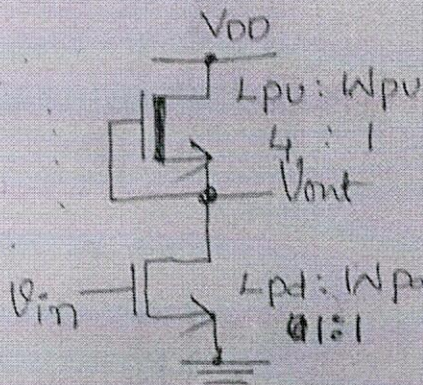 VDD
Lpu : Wpu
4 : 1
Vout
Vin
Lpd : Wpd
1:1